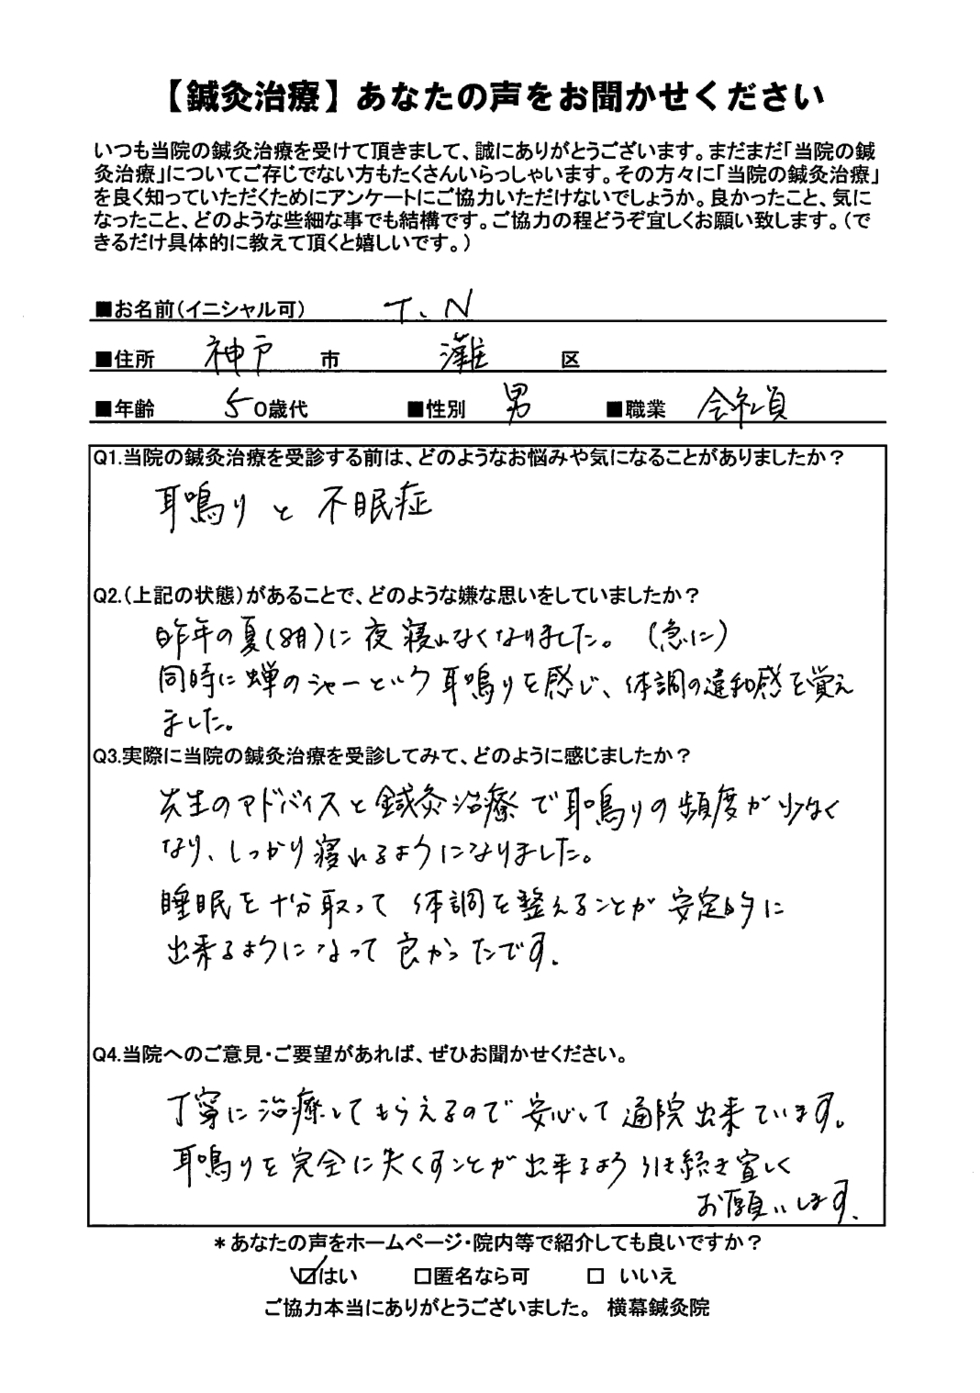 【鍼灸治療】あなたの声をお聞かせください
いつも当院の鍼灸治療を受けて頂きまして、誠にありがとうございます。まだまだ「当院の鍼
灸治療」についてご存じでない方もたくさんいらっしゃいます。その方々に「当院の鍼灸治療」
を良く知っていただくためにアンケートにご協力いただけないでしょうか。良かったこと、気に
なったこと、どのような些細な事でも結構です。ご協力の程どうぞ宜しくお願い致します。(で
きるだけ具体的に教えて頂くと嬉しいです。)
■お名前(イニシャル可) T、N
■住所 神戸 市 灘 区
■年齢 50歳代 ■性別 男 ■職業 会社員
Q1.当院の鍼灸治療を受診する前は、どのようなお悩みや気になることがありましたか?
耳鳴りと不眠症
Q2.(上記の状態)があることで、どのような嫌な思いをしていましたか?
昨年の夏(8月)に夜寝れなくなりました。(急に)
同時に蝉のシャーという耳鳴りを感じ、体調の違和感を覚え
ました。
Q3.実際に当院の鍼灸治療を受診してみて、どのように感じましたか?
先生のアドバイスと鍼灸治療で耳鳴りの頻度が少なく
なり、しっかり寝れるようになりました。
睡眠を十分取って体調を整えることが安定的に
出来るようになって良かったです.
Q4.当院へのご意見・ご要望があれば、ぜひお聞かせください。
丁寧に治療してもらえるので安心して通院出来ています。
耳鳴りを完全に失くすことが出来るよう引き続き宜しく
お願いします.
*あなたの声をホームページ・院内等で紹介しても良いですか?
☑はい □匿名なら可 □ いいえ
ご協力本当にありがとうございました。 横幕鍼灸院